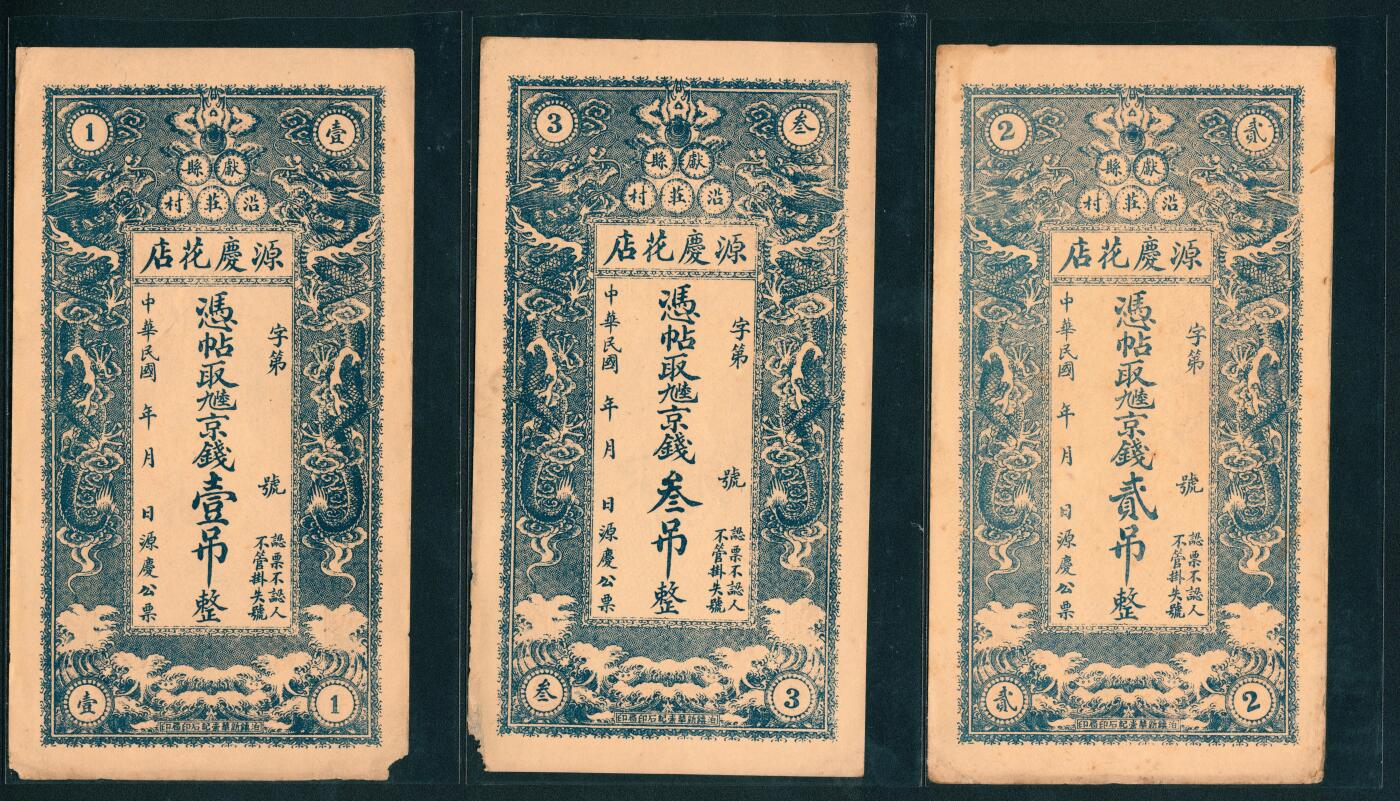 1
壹
獻縣
沿莊村
源慶花店
字第 號
認票不認人
不管掛失號
憑帖取九六京錢壹吊整
中華民國 年 月 日源慶公票
壹
1
3
叁
獻縣
沿莊村
源慶花店
字第 號
認票不認人
不管掛失號
憑帖取京錢叁吊整
中華民國 年 月 日源慶公票
叁
3
2
貳
獻縣
沿莊村
源慶花店
字第 號
認票不認人
不管掛失號
憑帖取京錢貳吊整
中華民國 年 月 日源慶公票
貳
2